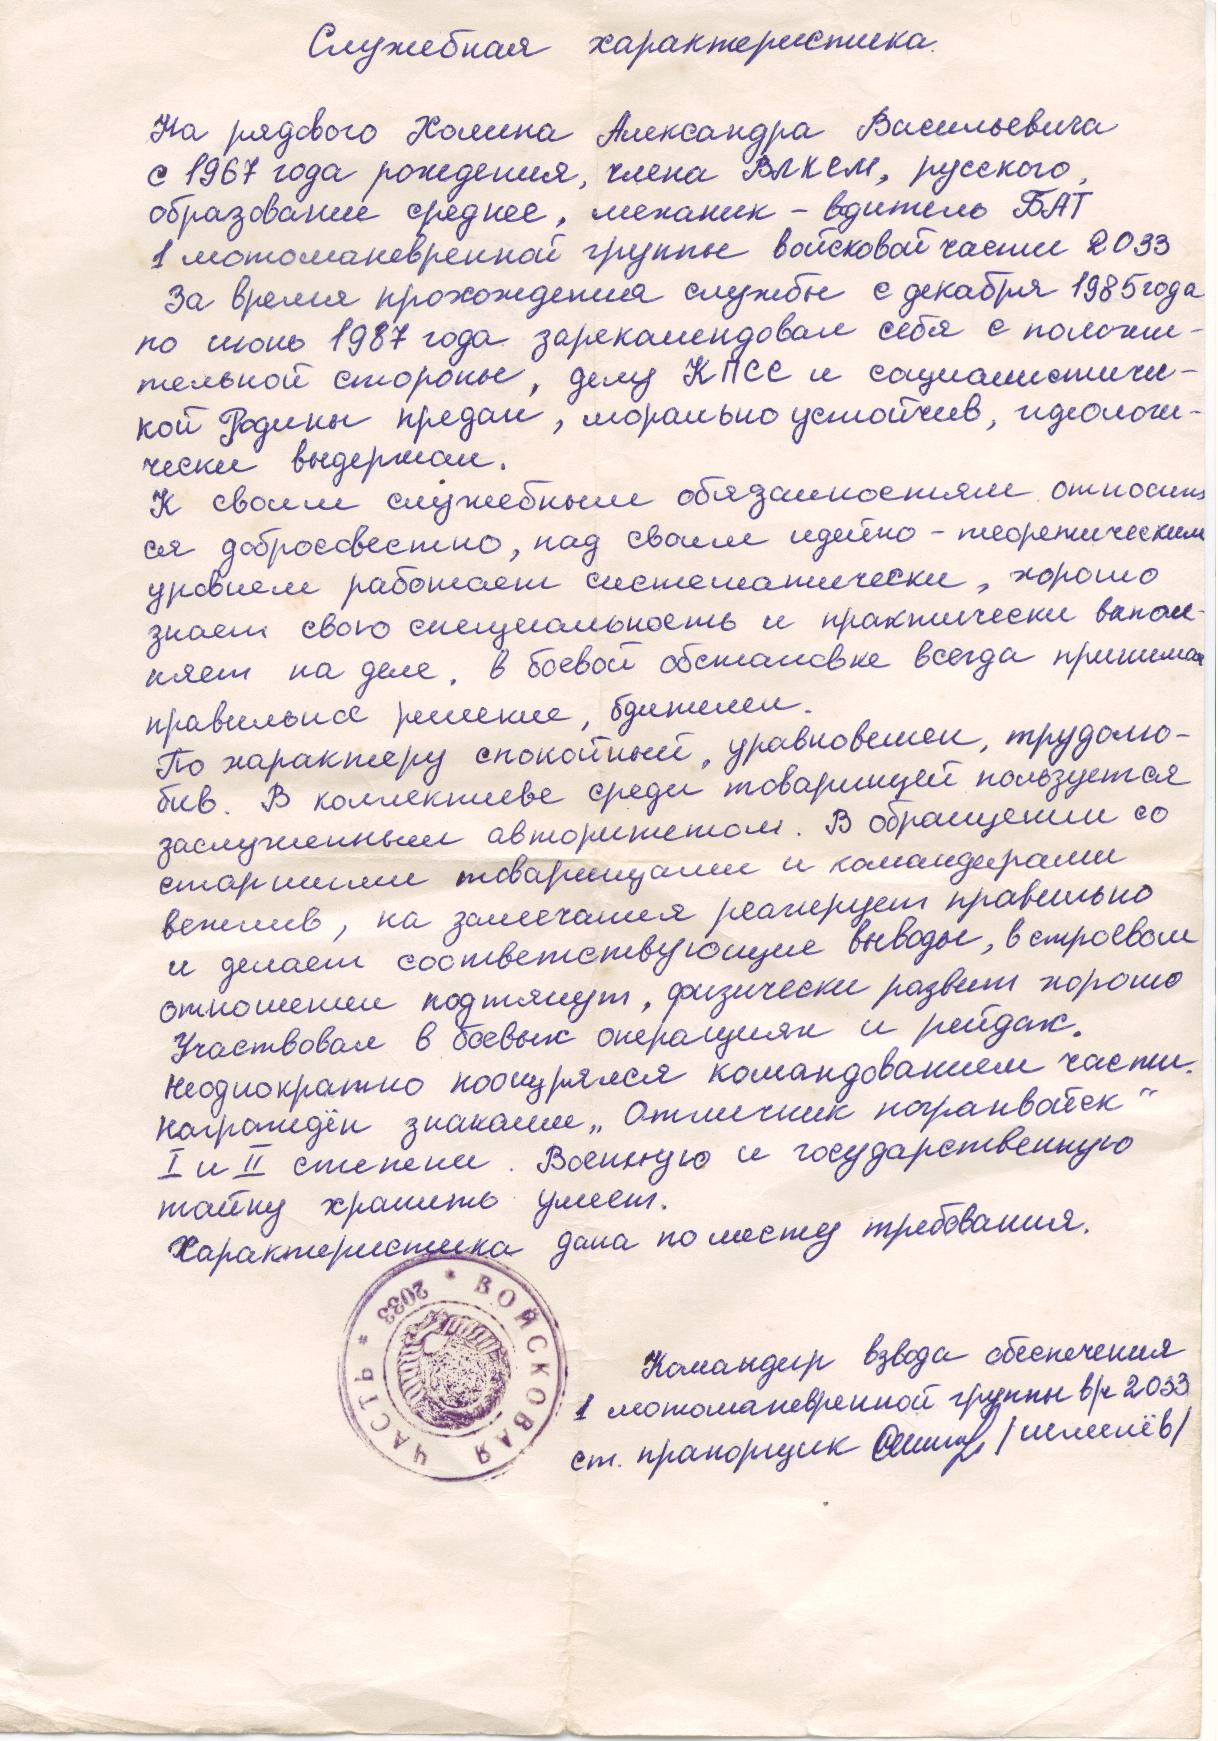 Служебная характеристика.
На рядового Холина Александра Васильевича
с 1967 года рождения, члена ВЛКСМ, русского,
образование среднее, механик – вдитель БАТ
1 мотоманевренной группы войсковой части 2033
За время прохождения службы с декабря 1985 года
по июнь 1987 года зарекомендовал себя с положи-
тельной стороны, делу КПСС и социалистиче-
кой Родины предан, морально устойчив, идеологи-
чески выдержан.
К своим служебным обязанностям относит
ся добросовестно, над своим идейно – теоретическим
уровнем работает систематически, хорошо
знает свою специальность и практически выпол-
няет на деле. в боевой обстановке всегда принимал
правильное решение, бдителен.
По характеру спокойный, уравновешен, трудолю-
бив. В коллективе среди товарищей пользуется
заслуженным авторитетом. В обращении со
старшими товарищами и командирами
вежлив, на замечания реагирует правильно
и делает соответствующие выводы, в строевом
отношении подтянут, физически развит хорошо
Участвовал в боевых операциях и рейдах.
Неоднократно поощрялся командованием части.
награждён знаками „Отличник погранвойск“
I и II степени. Военную и государственную
тайну хранить умеет.
Характеристика дана по месту требования.
ВОЙСКОВАЯ ЧАСТЬ * 2033 *
Командир взвода обеспечения
1 мотоманевренной группы в/ч 2033
ст. прапорщик /Шмелёв/